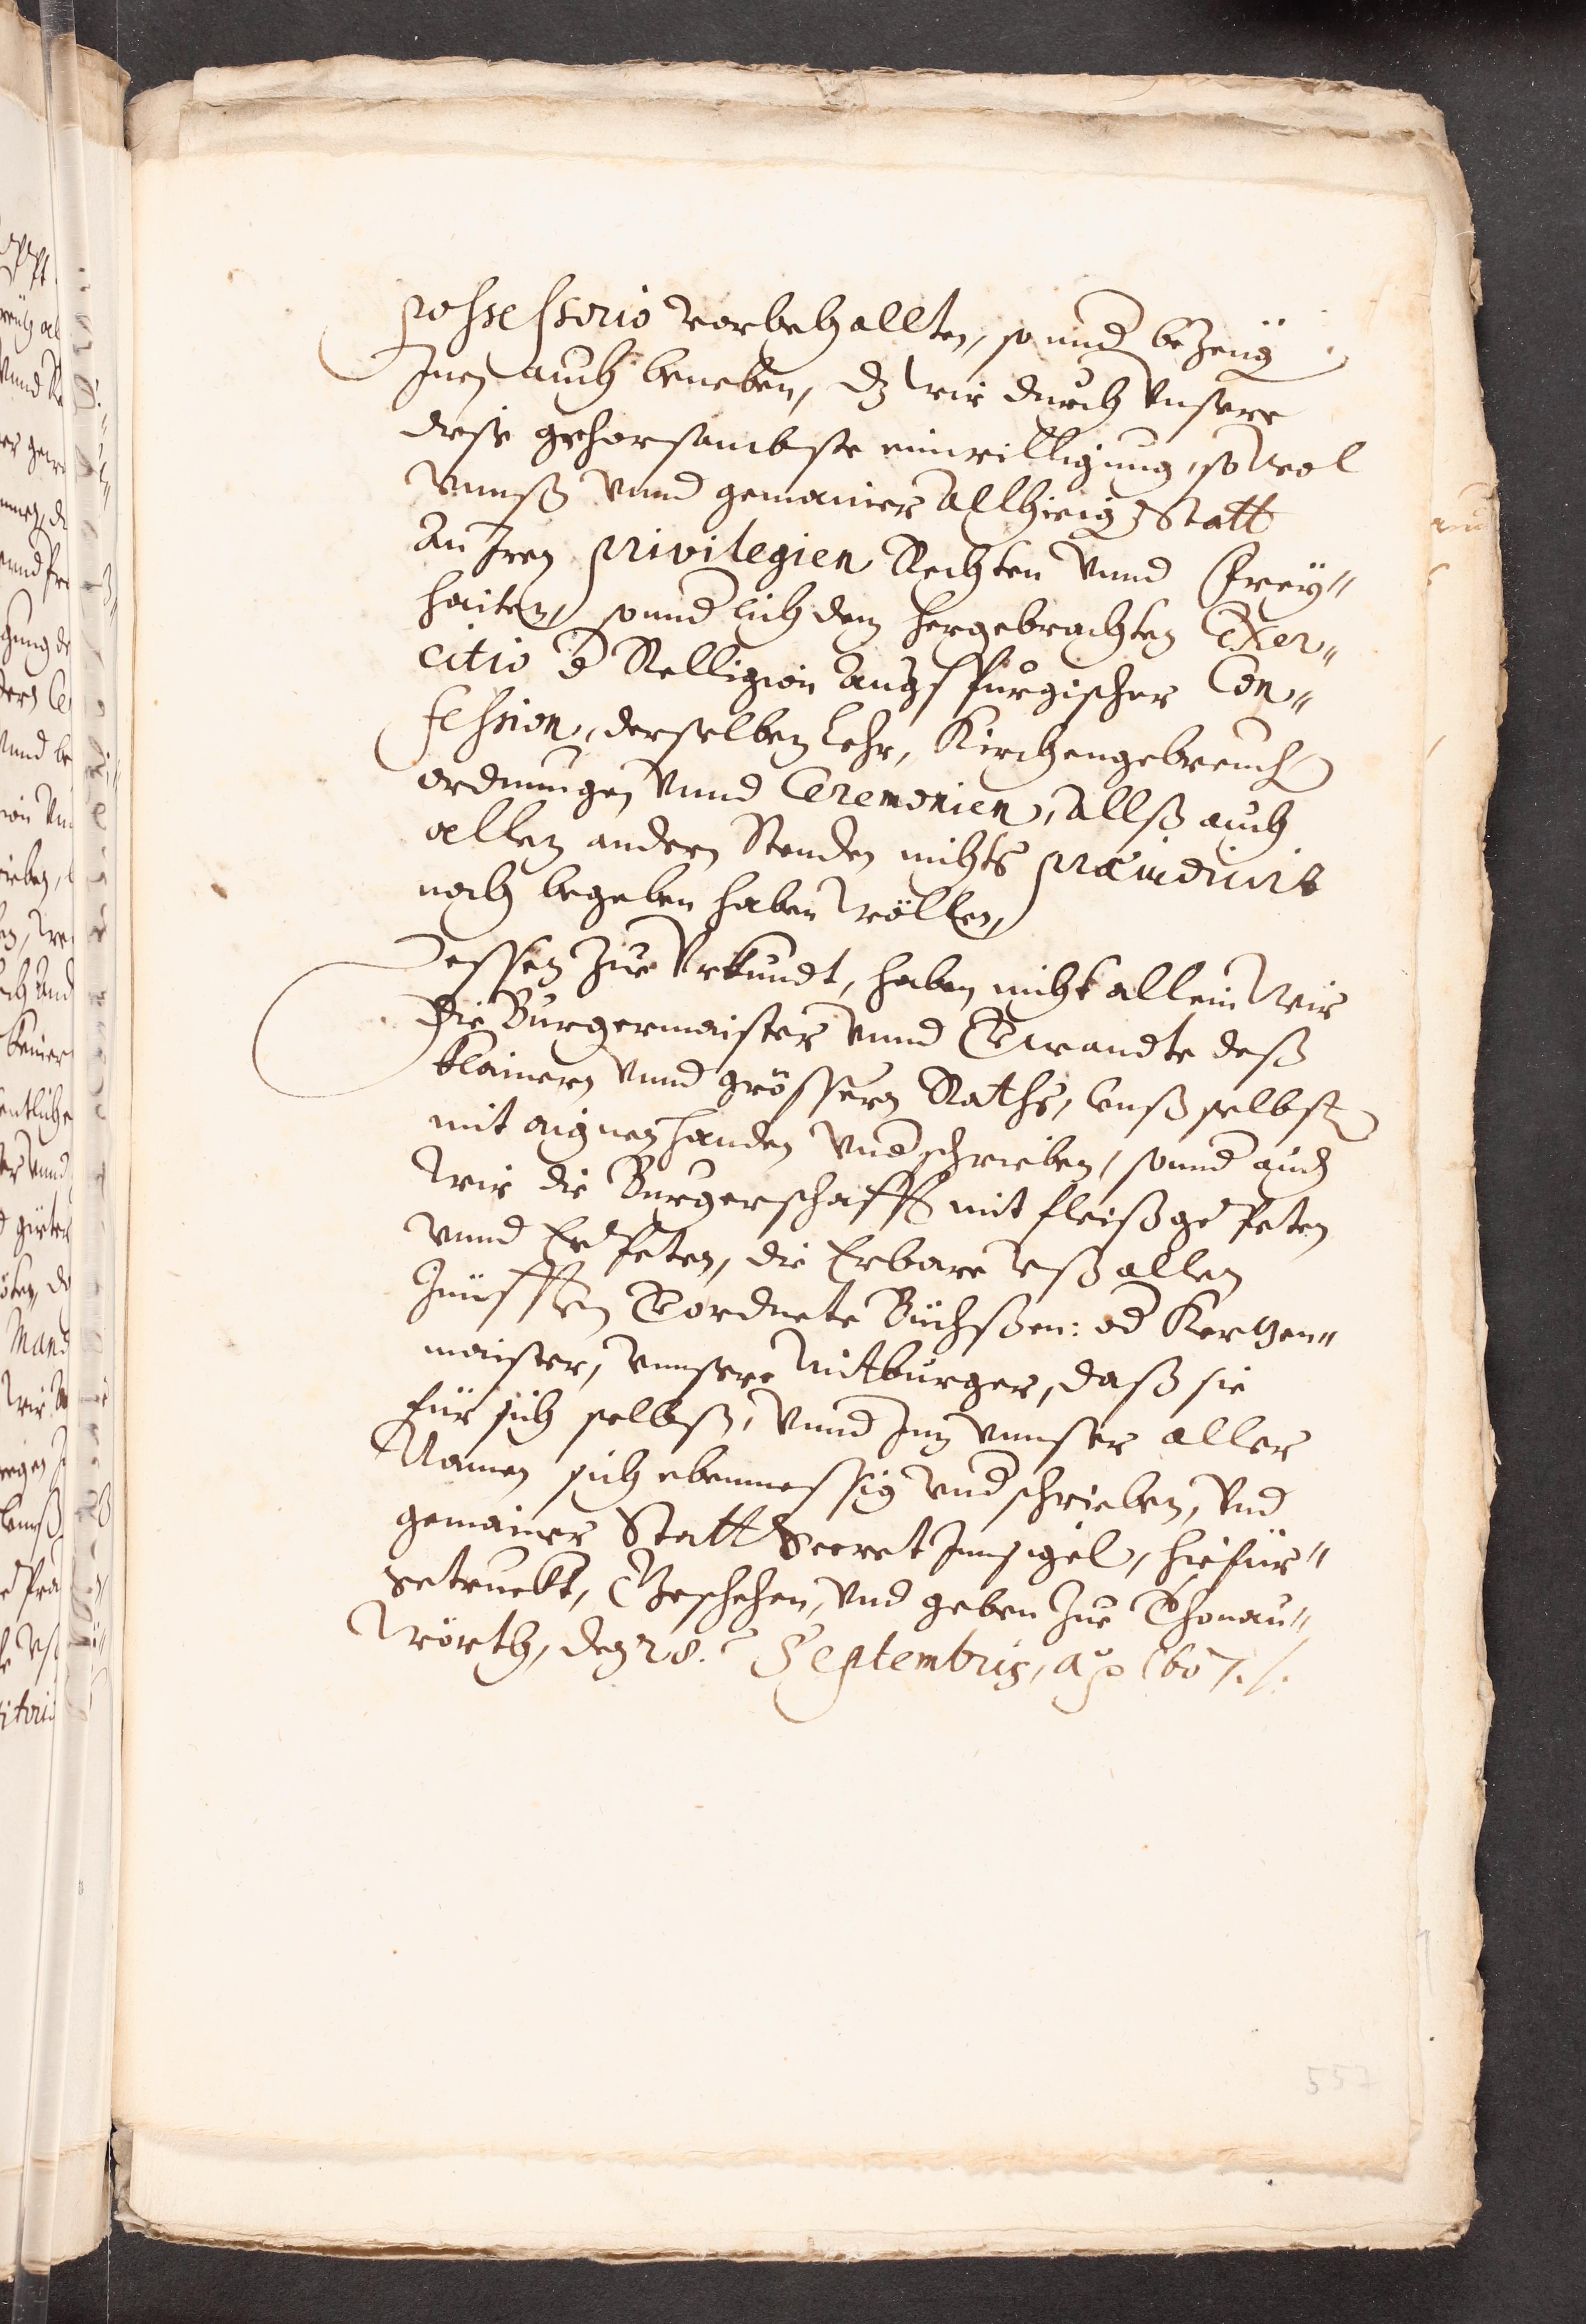 possessorio vorbehallten, sonnd bezeug
Inen auch beneben, dz wir durch vnsere
diese gehorsambste einwilligung, so wol
vnnß vnnd gemainer allhieiger Statt
an Iren privilegien Rechten vnnd Frey„
haiten, sonnd lich dem hergebrachten Exer„
citio d Relligion Augspurgischer Con„
fession, derselben Lehr, Kirchengebreuch
ordnungen vnnd Ceremonien, allß auch
allen andern Stenden nichts præiudicirt
noch begeben haben wöllen,
Dessen zue Vrkundt, haben nicht allein wir
die Burgermaister vnnd Verwandte deß
klainern vnnd grössern Raths, vnß selbst
mit aignen handen vnd schrieben, sonnd auch
wir die Burgerschafft mit fleiß gepeten
vnnd Erpeten, die Erbare vß allen
Zünfften Verordnete Büchßen: od Kertzen„
maister, vnnsere Mitburger, daß sie
für sich selbst, vnnd Inn vnnser aller
Namen sich ebenmessig vnd schrieben, vnd
gemainer Statt Secret Innsigel, hiefür„
getruckt, Geschehen, vnd geben zue Thonau„
wörth, den 28. Septembris, ao 1607./.
557